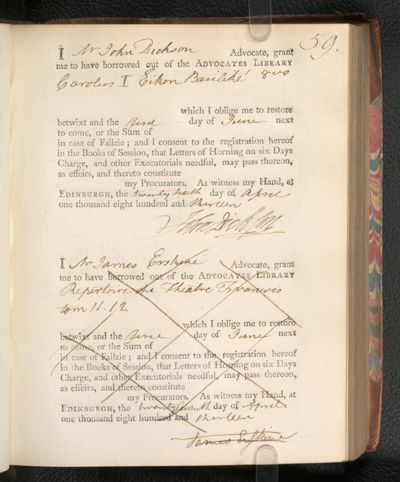 59.
I Mr John Dickson Advocate, grant
me to have borrowed out of the ADVOCATES LIBRARY
Carolus I Eikon Basilikè 8vo
which I oblige me to restore
betwixt and the first day of June next
to come, or the Sum of
in case of Failzie; and I consent to the registration hereof
in the Books of Session, that Letters of Horning on six Days
Charge, and other Executorials needful, may pass thereon,
as effeirs, and thereto constitute
my Procurators. As witness my Hand, at
EDINBURGH, the day of April
one thousand eight hundred and thirteen
Jno Dickson
I Mr James Erskine Advocate, grant
me to have borrowed out of the ADVOCATES LIBRARY
Repertoire du Theatre Francois
tom 11. 12
which I oblige me to restore
betwixt and the first day of June next
to come, or the Sum of
in case of Failzie; and I consent to the registration hereof
in the Books of Session, that Letters of Horning on six Days
Charge, and other Executorials needful, may pass thereon,
as effeirs, and thereto constitute
my Procurators. As witness my Hand, at
EDINBURGH, the twenty seventh day of April
one thousand eight hundred and thirteen
James Erskine